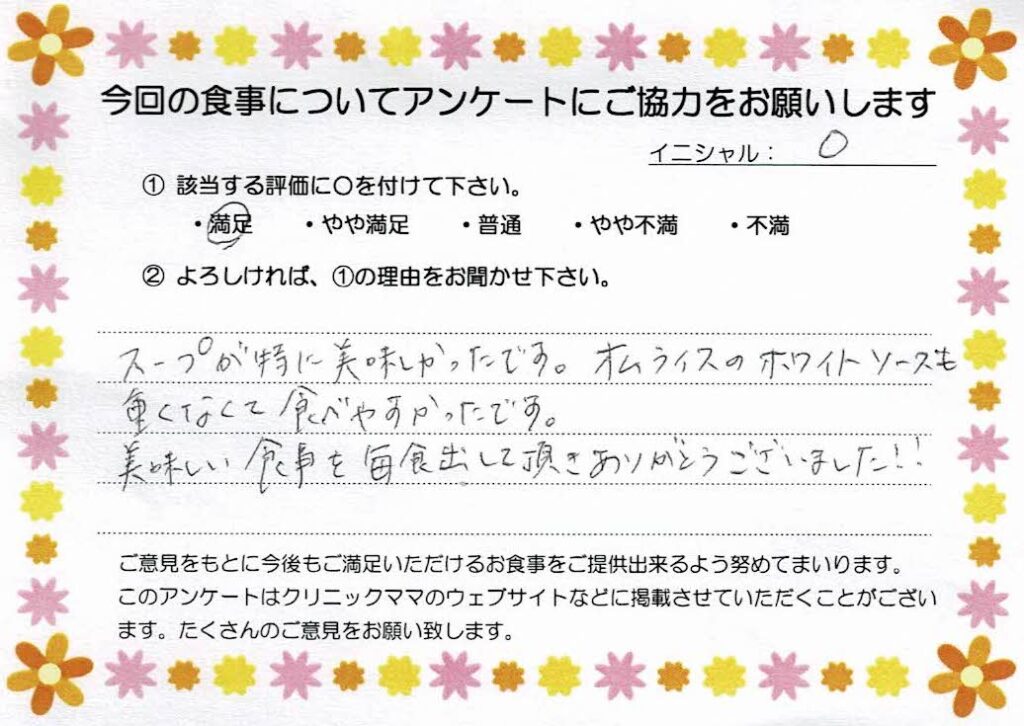 今回の食事についてアンケートにご協力をお願いします
イニシャル： O
① 該当する評価に〇を付けて下さい。
・満足 ・やや満足 ・普通 ・やや不満 ・不満
② よろしければ、①の理由をお聞かせ下さい。
スープが特に美味しかったです。オムライスのホワイトソースも
重くなくて食べやすかったです。
美味しい食事を毎食出して頂きありがとうございました!!
ご意見をもとに今後もご満足いただけるお食事をご提供出来るよう努めてまいります。
このアンケートはクリニックママのウェブサイトなどに掲載させていただくことがござい
ます。たくさんのご意見をお願い致します。